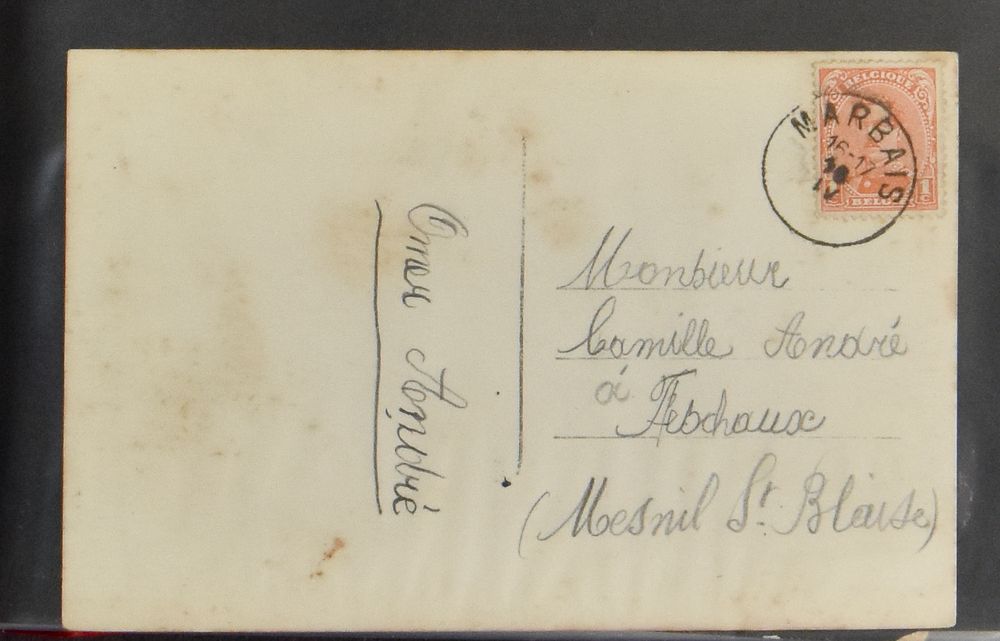 BELGIQUE
1
c
BELGIË
MARBAIS
16-17
Omer André
Monsieur
Camille André
à
Feschaux
(Mesnil St. Blaise)